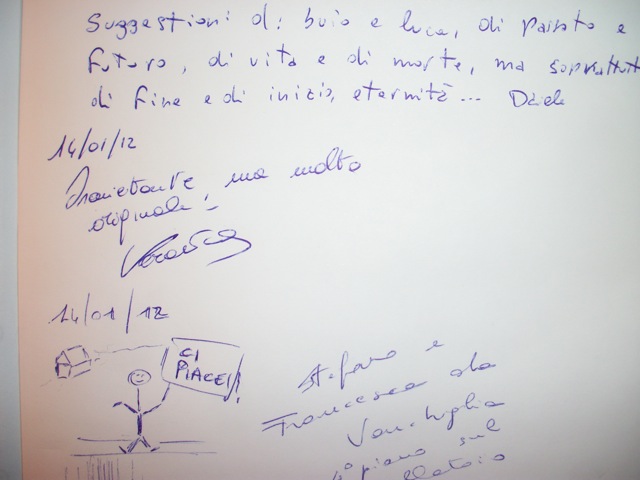 Suggestioni di: buio e luce, di passato e
futuro, di vita e di morte, ma soprattutto
di fine e di inizio, eternità...
14/01/12
Inquietante, ma molto
originale!
Veronica
14/01/12
CI
PIACE!!
Stefano e
Francesca da
Vanchiglia
4° piano sul
ballatoio